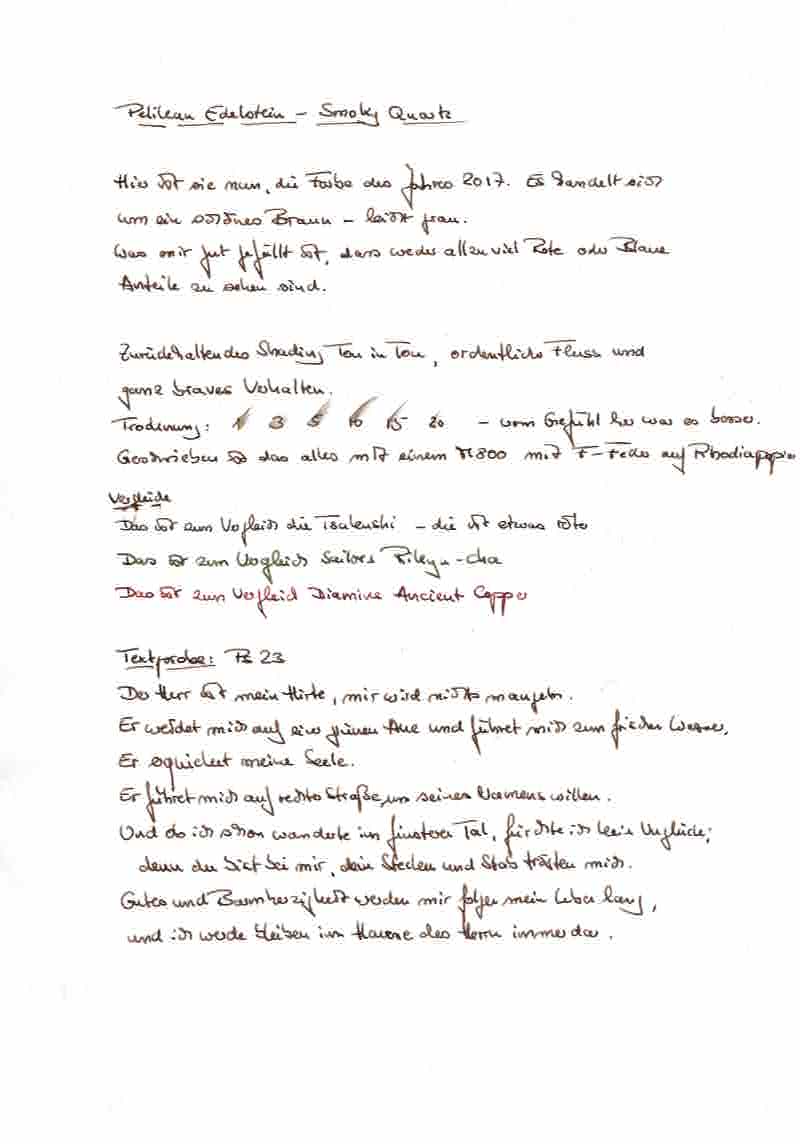 Pelikan Edelstein – Smoky Quartz
Hier ist sie nun, die Farbe des Jahres 2017. Es handelt sich
um ein schönes Braun – leicht grau.
Was mir gut gefällt ist, dass weder allzu viel Rote oder Blaue
Anteile zu sehen sind.
Zurückhaltendes Shading Ton in Ton, ordentlicher Fluss und
ganz braves Verhalten.
Trocknung: 1 3 5 10 15 20 – vom Gefühl her war es besser.
Geschrieben ist das alles mit einem M800 mit F-Feder auf Rhodiapapier
Vergleiche
Das ist zum Vergleich die Tsukushi – die ist etwas röter
Das ist zum Vergleich Sailors Rikyu-cha
Das ist zum Vergleich Diamine Ancient Copper
Textprobe: Ps 23
Der Herr ist mein Hirte, mir wird nichts mangeln.
Er weidet mich auf einer grünen Aue und führet mich zum frischen Wasser,
Er erquicket meine Seele.
Er führet mich auf rechter Straße um seines Namens willen.
Und ob ich schon wanderte im finsteren Tal, fürchte ich kein Unglück;
denn du bist bei mir, dein Stecken und Stab trösten mich.
Gutes und Barmherzigkeit werden mir folgen mein Leben lang,
und ich werde bleiben im Hause des Herrn immerdar.